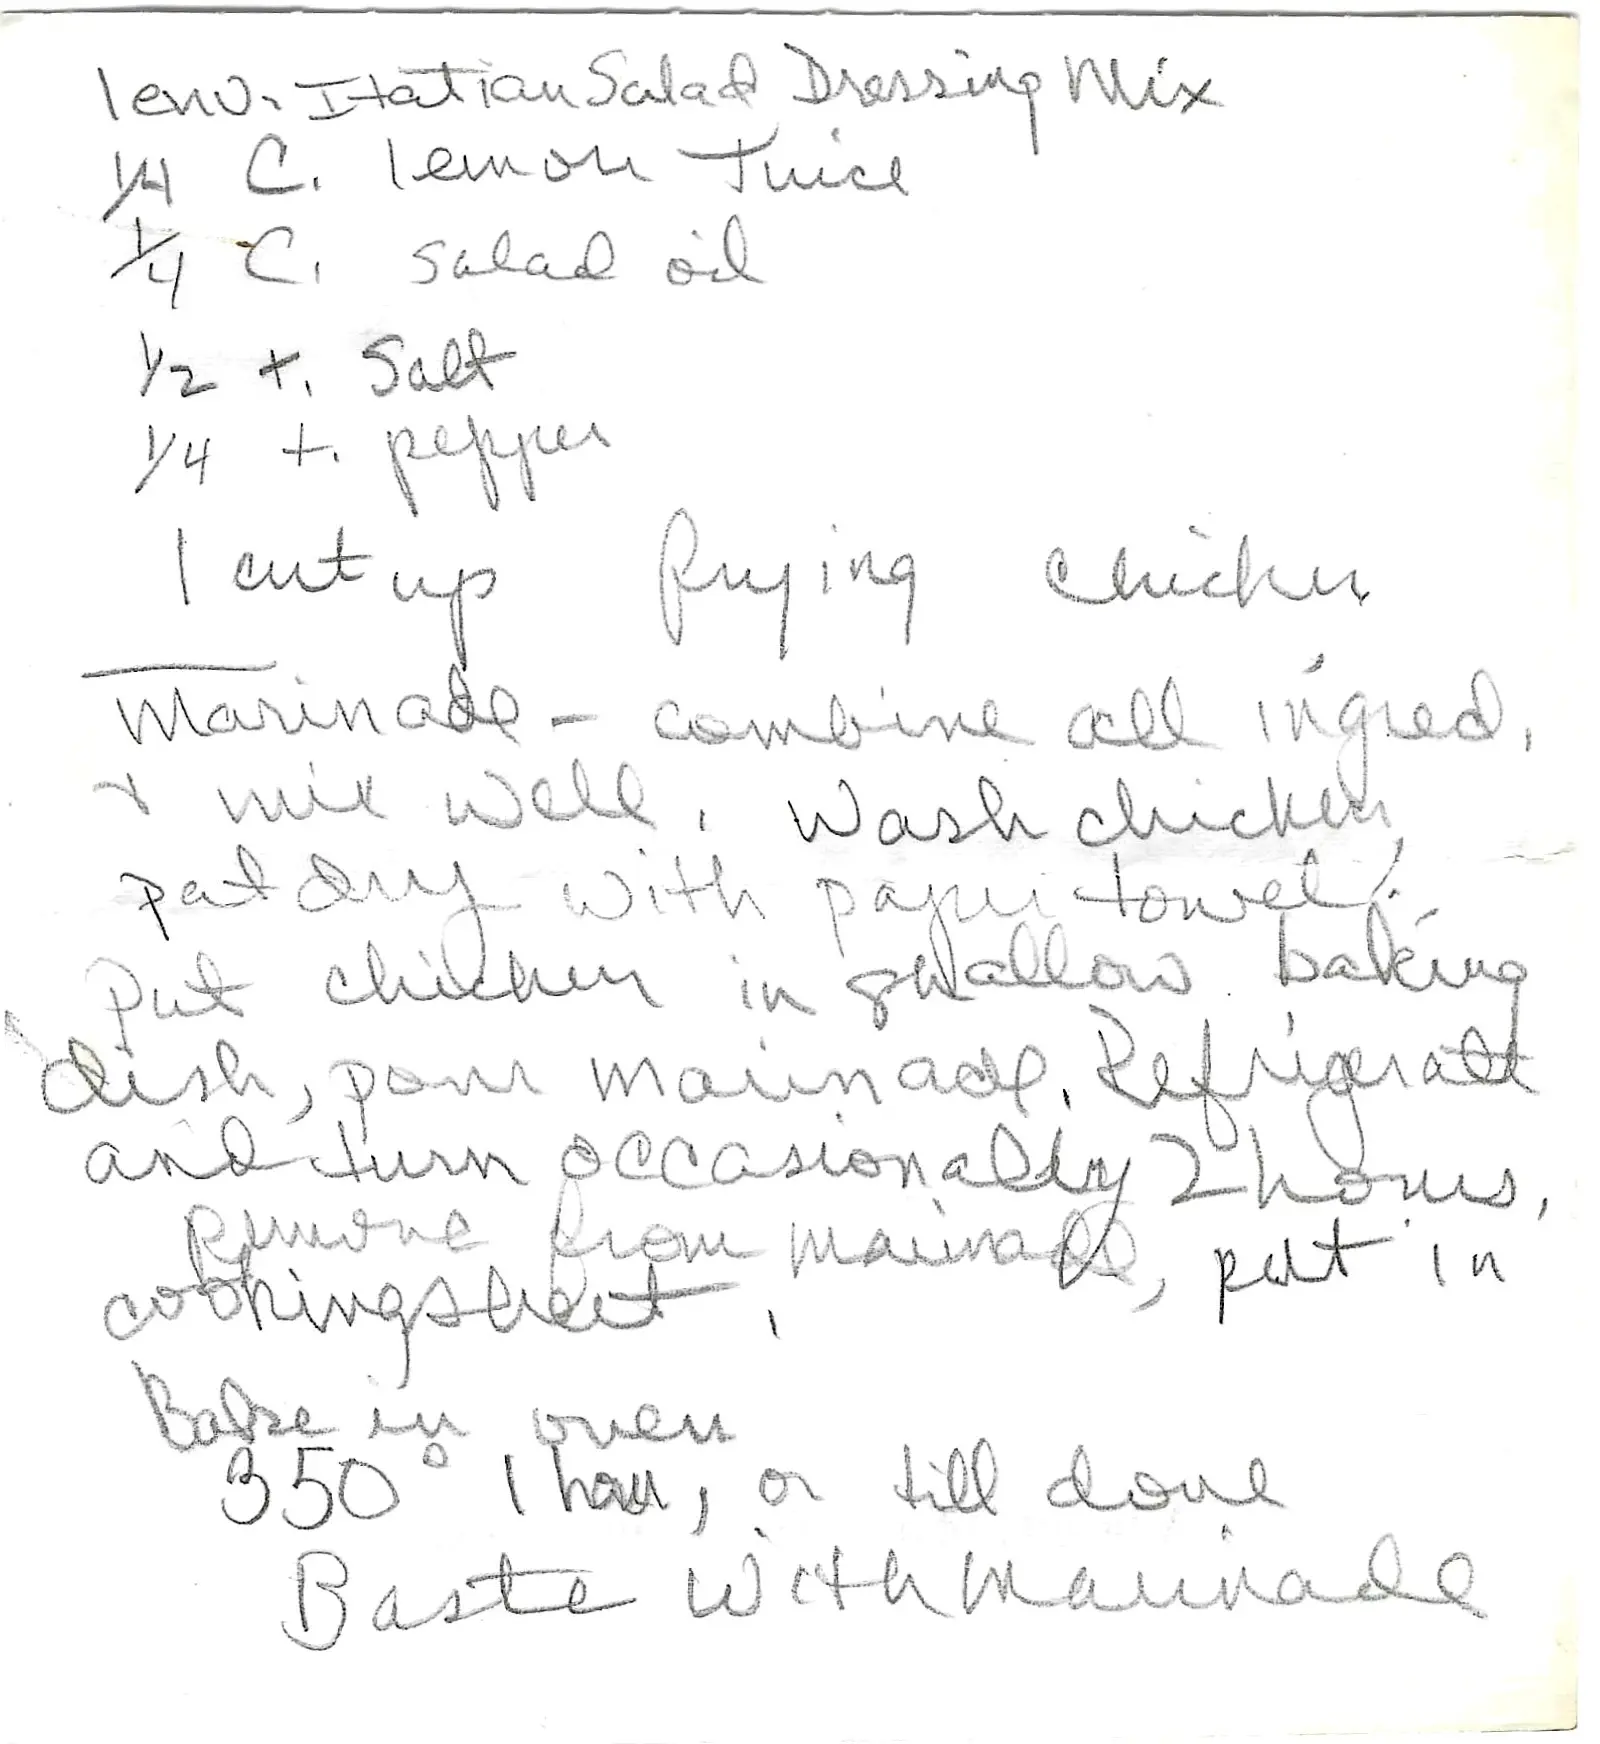 1 env. Italian Salad Dressing Mix
1/4 C. lemon Juice
1/4 C. salad oil
1/2 t. Salt
1/4 t. pepper
1 cut up frying chicken
Marinade - combine all ingred.
& mix well. Wash chicken,
pat dry with paper towel.
Put chicken in shallow baking
dish, pour marinade. Refrigerate
and turn occasionally 2 hours.
Remove from marinade, put in
cookingsheet.
Bake in oven
350° 1 hour, or till done
Baste with marinade